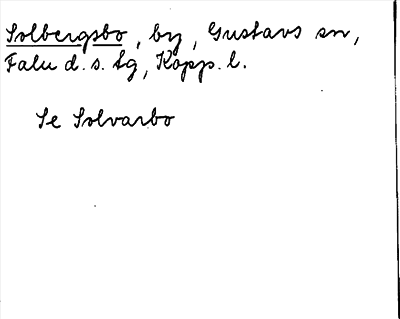 Solbergsbo, by, Gustavs sn,
Falu d.s. lg, Kopp. l.
Se Solvarbo